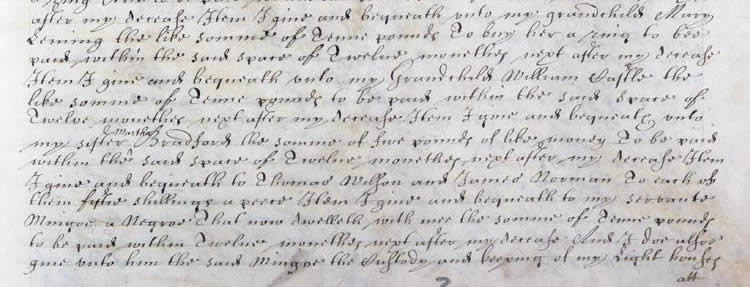 after my decease Item I give and bequeath unto my grandchild Mary
Leming the like somme of Tenne pounds To buy her a ring to bee
paid within the said space of Twelve monethes next after my decease
Item I give and bequeath unto my Grandchild William Castle the
like somme of Tenne pounds to be paid within the said space of
Twelve monethes next after my decease Item I give and bequeath unto
my sister Martha Bradford the somme of five pounds of like money To be paid
within the said space of Twelve monethes next after my decease Item
I give and bequeath to Thomas Wilson and James Norman To each of
them fiftie shillings a peece Item I give and bequeath to my servante
Mingoe a Negroe That now dwelleth with mee the somme of Tenne pounds
to be paid within Twelve monethes next after my decease And I doe alsoe
give unto him the said Mingoe the Custody and keeping of my Light houses
att